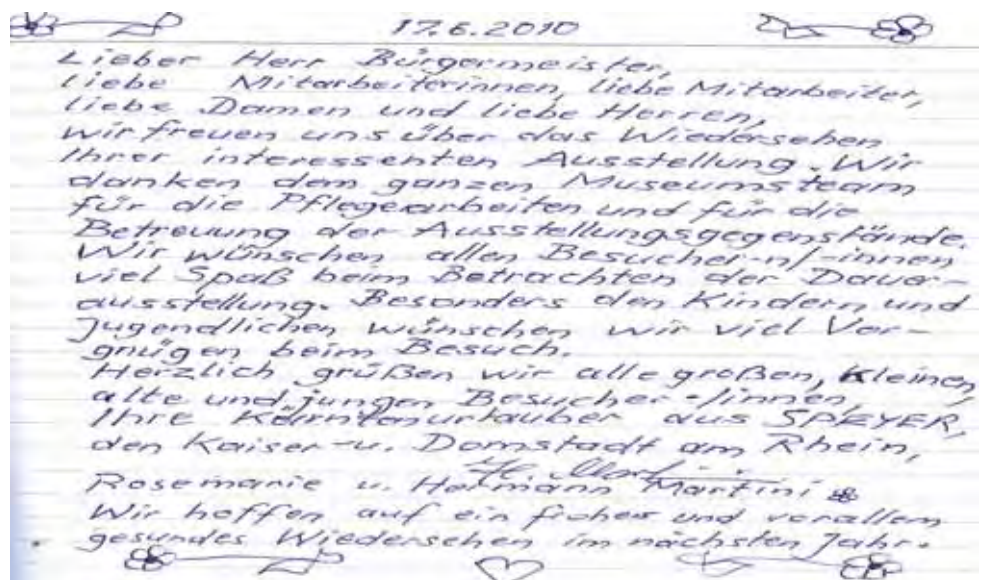 17.6.2010
Lieber Herr Bürgermeister,
liebe Mitarbeiterinnen, liebe Mitarbeiter,
liebe Damen und liebe Herren,
wir freuen uns über das Wiedersehen
Ihrer interessenten Ausstellung. Wir
danken dem ganzen Museumsteam
für die Pflegearbeiten und für die
Betreuung der Ausstellungsgegenstände.
Wir wünschen allen Besucher-n/-innen
viel Spaß beim Betrachten der Dauer-
ausstellung. Besonders den Kindern und
Jugendlichen wünschen wir viel Ver-
gnügen beim Besuch.
Herzlich grüßen wir alle großen, kleinen,
alte und jungen Besucher-/innen,
Ihre Kärntenurlauber aus SPEYER,
den Kaiser-u. Domstadt am Rhein,
Rosemarie u. Hermann Martini
Wir hoffen auf ein frohes und vorallem
gesundes Wiedersehen im nächsten Jahr.